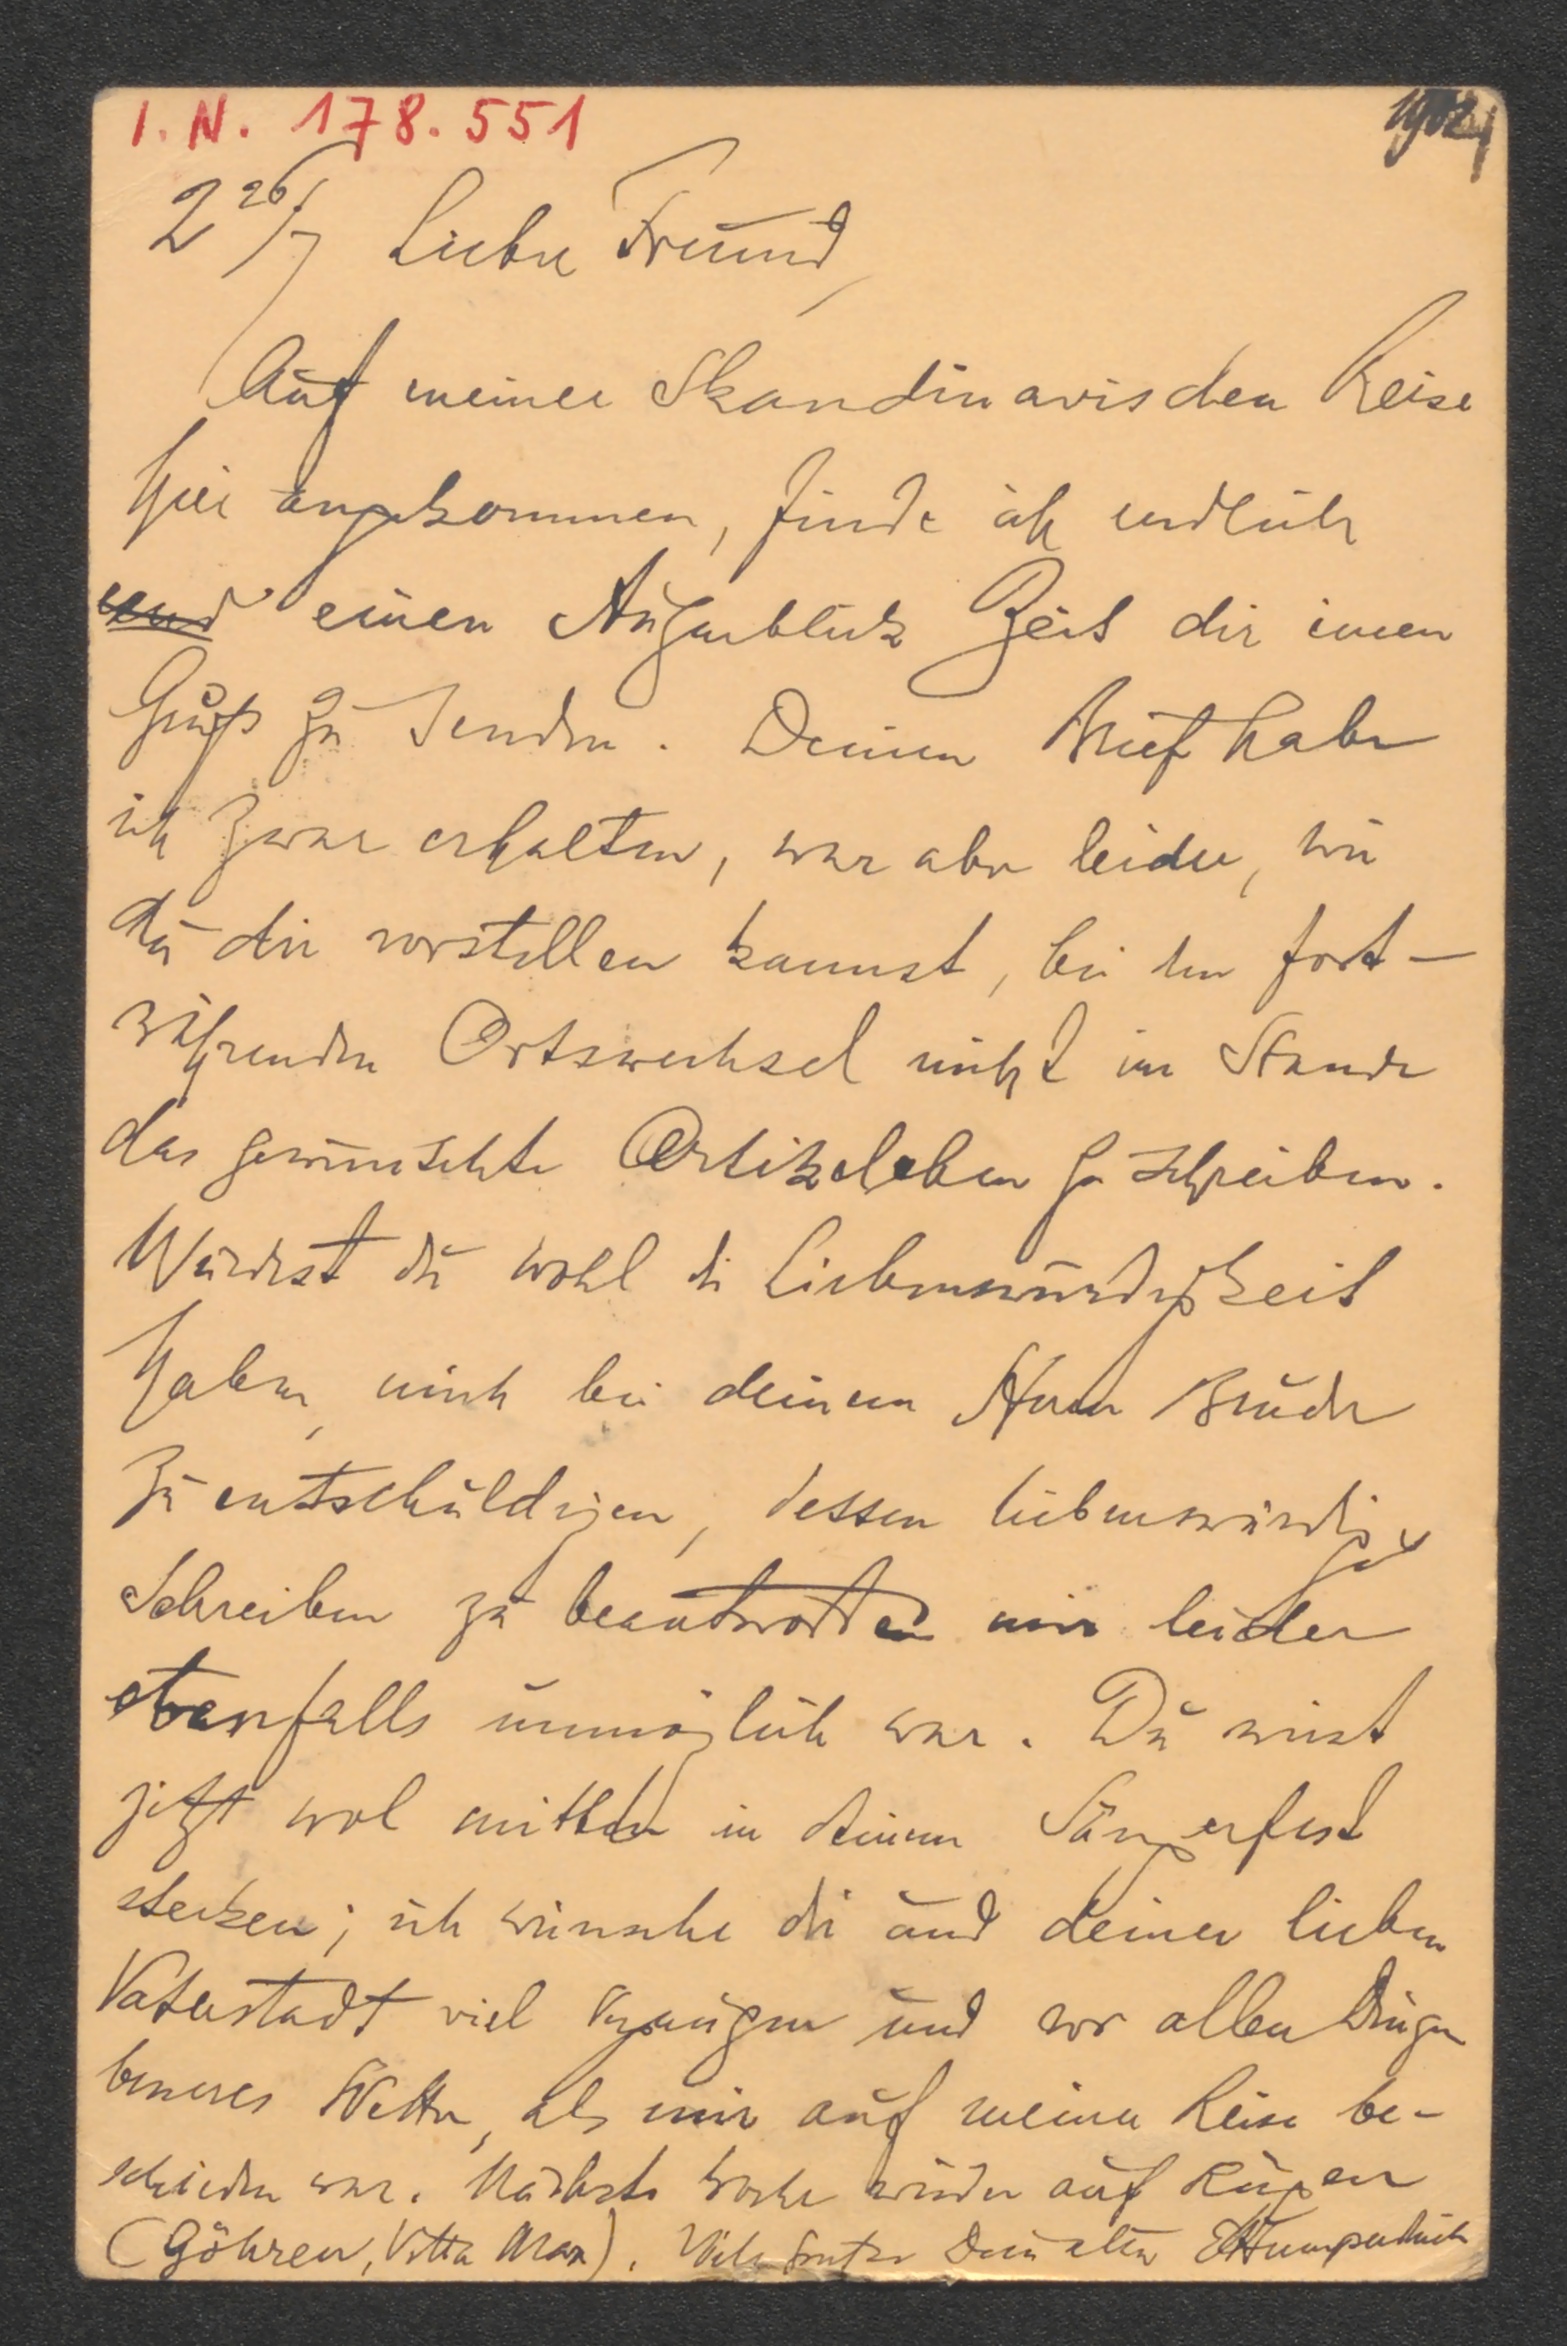 I. N. 178.551
1902
26/7 Lieber Freund,
Auf meiner Skandinavischen Reise
hier angekommen, finde ich endlich
einen Augenblick Zeit dir einen
Gruß zu senden. Deinen Brief habe
ich zwar erhalten, war aber leider, wie
du dir vorstellen kannst, bei dem fort-
währenden Ortswechsel nicht im Stande
das gewünschte zu schreiben.
Würdest du wohl die Liebenswürdigkeit
haben, mich bei deinem Herrn Bruder
zu entschuldigen, dessen liebenswürdiges
Schreiben zu beantworten mir leider
ebenfalls unmöglich war. Du wirst
jetzt wol mitten in deinem Sängerfest
stecken; ich wünsche dir und deiner lieben
Vaterstadt viel Vergnügen und vor allen Dingen
besseres Wetter, als mir auf meiner Reise be-
schieden war. Nächste Woche wieder auf Rügen
(Göhren, Villa Max). Viele Grüße Dein alter EHumperdinck